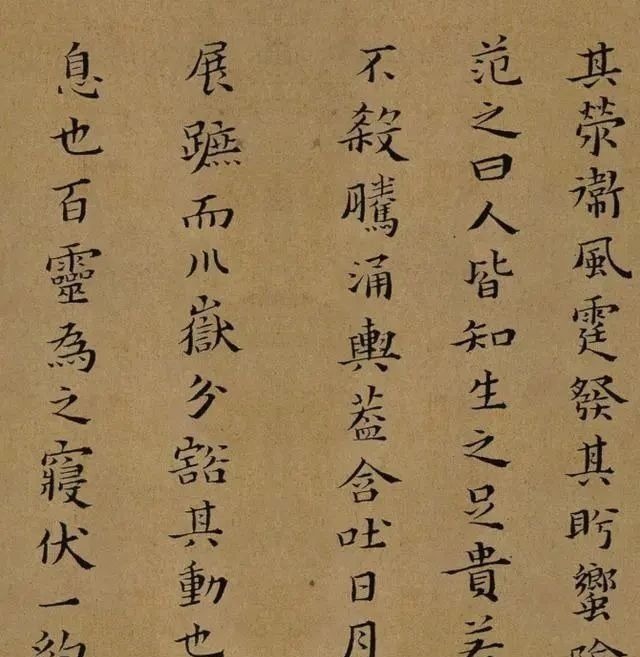 其滎衞風霆發其盻蠁陰
范之曰人皆知生之足貴若
不殺騰涌輿蓋含吐日月
展蹠而川嶽分豁其動也
息也百靈為之寢伏一豹